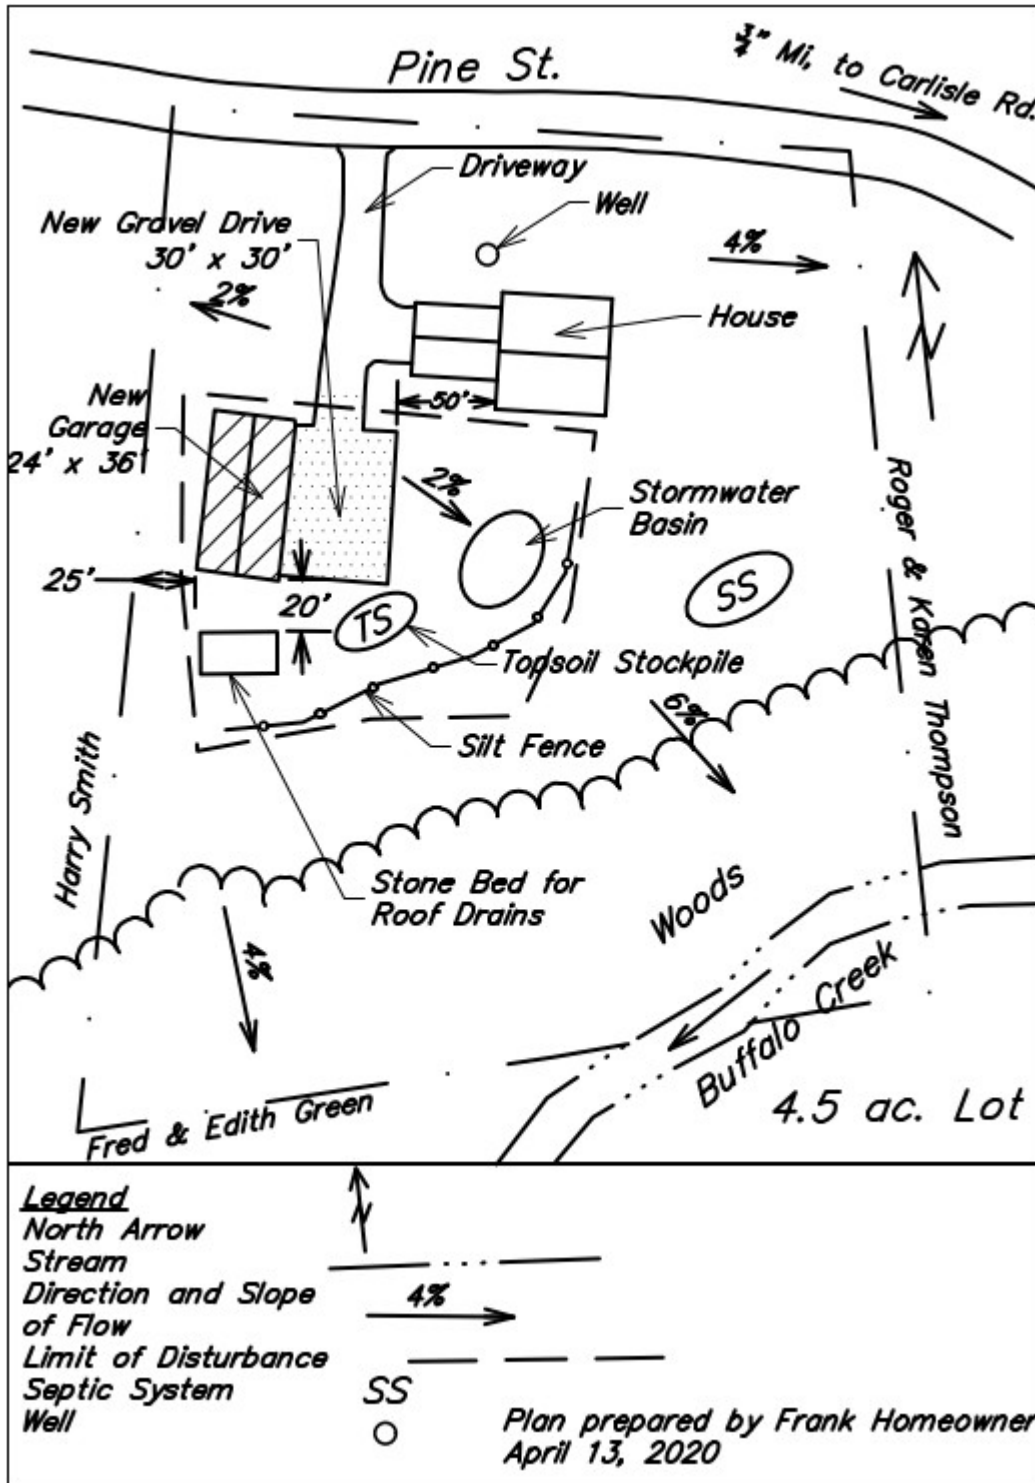 Pine St.
3/4" Mi, to Carlisle Rd.
Driveway
Well
New Gravel Drive
30' x 30'
4%
2%
House
New
Garage
24' x 36'
50'
2%
Stormwater
Basin
Roger & Karen Thompson
25'
20'
TS
SS
Topsoil Stockpile
6%
Silt Fence
Harry Smith
Stone Bed for
Roof Drains
Woods
4%
Buffalo Creek
Fred & Edith Green
4.5 ac. Lot
Legend
North Arrow
Stream
Direction and Slope
of Flow
4%
Limit of Disturbance
Septic System
SS
Well
Plan prepared by Frank Homeowner
April 13, 2020